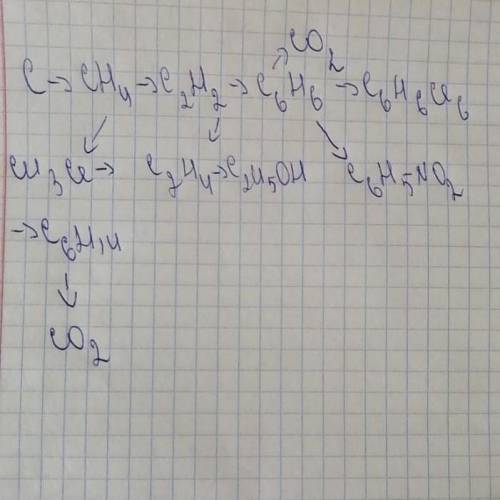 CO₂
C → CH₄ → C₂H₂ → C₆H₆ → C₆H₆Cl₆
CH₃Cl → C₂H₄ → C₂H₅OH C₆H₅NO₂
→ C₆H₁₄
CO₂